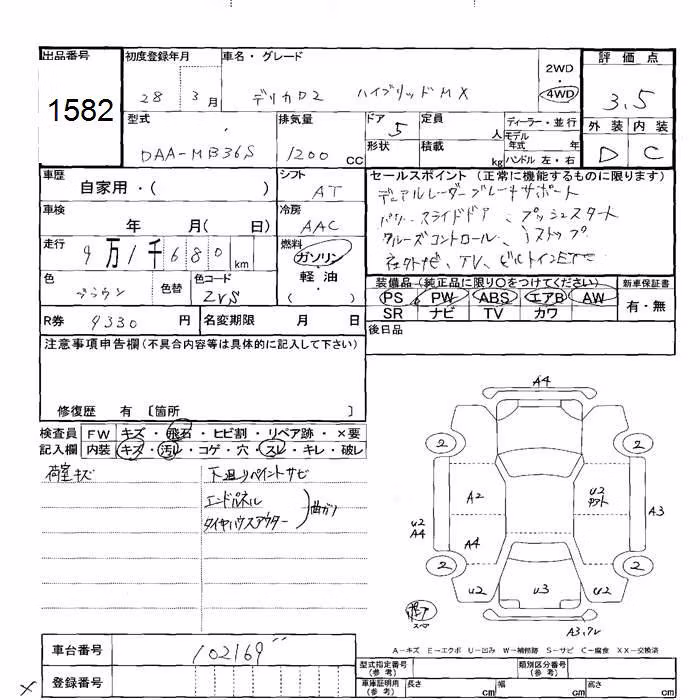 出品番号 初度登録年月 車名・グレード 2WD・4WD 評価点
1582 28 3月 デリカD2 ハイブリッドMX 3.5
型式 排気量 ドア 定員 人 ディーラー・並行 外装 内装
DAA-MB36S 1200 CC 5 形状 積載 kg モデル年式 年 ハンドル 左・右 D C
車歴 自家用・( ) シフト AT セールスポイント (正常に機能するものに限ります)
デュアルレーダーブレーキサポート
車検 年 月( 日) 冷房 AAC
パワースライドドア、プッシュスタート
走行 9万1千680km 燃料 ガソリン・軽油 ( )
クルーズコントロール、iストップ
社外ナビ、TV、ビルトインETC
色 ブラウン 色替 色コード ZVS
装備品 (純正品に限り○をつけてください) 新車保証書
PS PW ABS エアB AW 有・無
SR ナビ TV カワ
R券 9330円 名変期限 月 日
後日品
注意事項申告欄(不具合内容等は具体的に記入して下さい)
修復歴 有 [箇所 ]
検査員記入欄 FW キズ・飛石・ヒビ割・リペア跡・×要
内装 キズ・汚レ・コゲ・穴・スレ・キレ・破レ
荷室キズ 下廻りペイントサビ
エンドパネル
タイヤハウスアウター 曲がり
A4
2 2
A2 U2
U2 A4 A3
A4
2 2
U2 U3 U2
スペア
A3,
A-キズ E-エクボ U-凹み W-補修跡 S-サビ C-腐食 XX-交換済
車台番号 102169
登録番号
型式指定番号(参考) 類別区分番号(参考)
車庫証明用(参考) 長さ cm 幅 cm 高さ cm
×